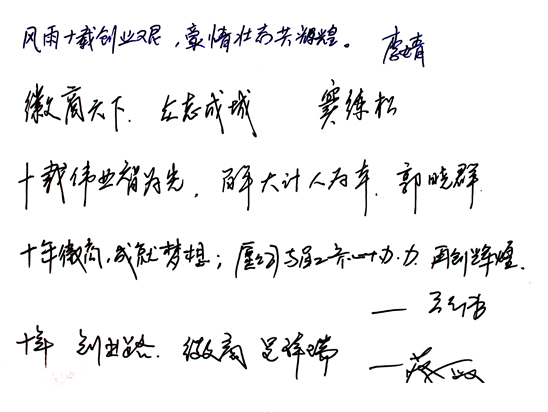 风雨十载创业艰，豪情壮志共辉煌。 李婧
徽商天下。众志成城 窦练松
十载伟业智为先，百年大计人为本。郭晓群
十年徽商，成就梦想；公司与员工齐心协力，再创辉煌。
十年 创业路。徽商 呈祥瑞